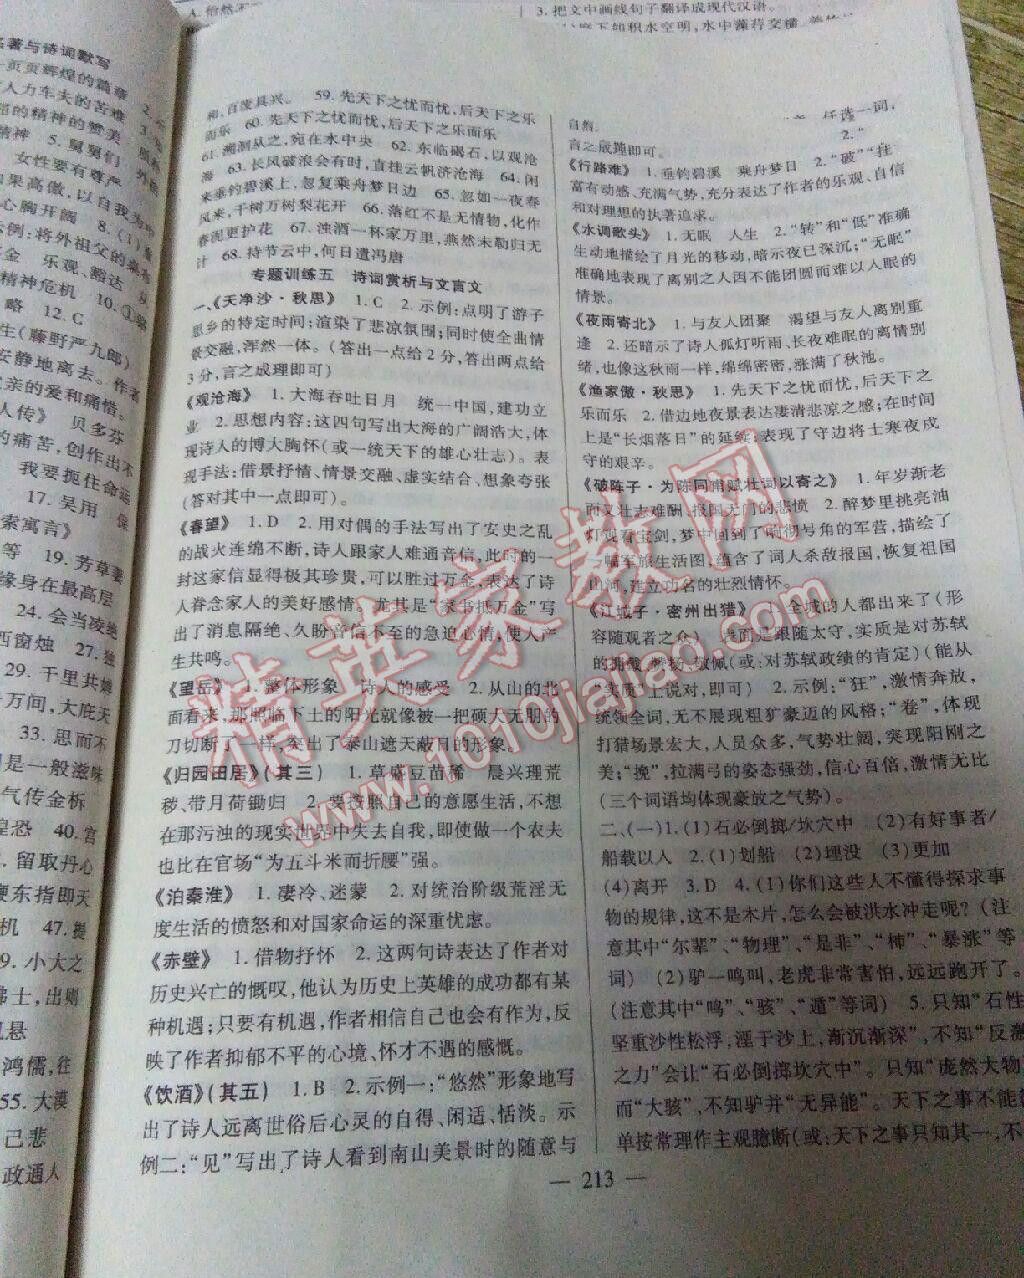 A. 怡然
3. 把文中画线句子翻译成现代汉语。
庭下如积水空明,水中藻荇交横
名著与诗词默写
一页页辉煌的篇章 2.
人力车夫的苦难
部的精神的赞美
神 5. 舅舅们
女性要有尊严
果高傲,以自我为
心胸开阔 8. (1)
示例:将外祖父的
金 乐观、豁达
精神危机 10. ①
略 12. C
生(藤野严九郎)
安静地离去。作者
父亲的爱和痛惜。
人传》 贝多芬
的痛苦,创作出不
我要扼住命运
17. 吴用 保
索寓言》
等 19. 芳草萋
缘身在最高层
24. 会当凌绝
西窗烛 27. 独
29. 千里共婵
千万间,大庇天
33. 思而不
别是一般滋味
气传金柝
惶恐 40. 宫
留取丹心
更东指即天
机 47. 提
9. 小大之
弗士,出则
见悬
鸿儒,往
55. 大漠
己悲
政通人
和,百废具兴。 59. 先天下之忧而忧,后天下之乐
而乐 60. 先天下之忧而忧,后天下之乐而乐
61. 溯洄从之,宛在水中央 62. 东临碣石,以观沧
海 63. 长风破浪会有时,直挂云帆济沧海 64. 闲
来垂钓碧溪上,忽复乘舟梦日边 65. 忽如一夜春
风来,千树万树梨花开 66. 落红不是无情物,化作
春泥更护花 67. 浊酒一杯家万里,燕然未勒归无
计 68. 持节云中,何日遣冯唐
专题训练五 诗词赏析与文言文
一、《天净沙·秋思》 1. C 2. 示例:点明了游子
思乡的特定时间;渲染了悲凉氛围;同时使全曲情
景交融,浑然一体。(答出一点给2分,答出两点给
3分,言之成理即可)
《观沧海》 1. 大海吞吐日月 统一中国,建功立
业 2. 思想内容:这四句写出大海的广阔浩大,体
现诗人的博大胸怀(或一统天下的雄心壮志)。表
现手法:借景抒情、情景交融、虚实结合、想象夸张
(答对其中一点即可)。
《春望》 1. D 2. 用对偶的手法写出了安史之乱
的战火连绵不断,诗人跟家人难通音信,此时的一
封这家信显得极其珍贵,可以胜过万金,表达了诗
人眷念家人的美好感情。尤其是“家书抵万金”写
出了消息隔绝、久盼音信不至的急迫心情,使人产
生共鸣。
《望岳》 1. 整体形象 诗人的感受 2. 从山的北
面看来,那照临下土的阳光就像被一把硕大无朋的
刀切断了一样,突出了泰山遮天蔽日的形象。
《归园田居》(其三) 1. 草盛豆苗稀 晨兴理荒
秽、带月荷锄归 2. 要按照自己的意愿生活,不想
在那污浊的现实世界中失去自我,即使做一个农夫
也比在官场“为五斗米而折腰”强。
《泊秦淮》 1. 凄冷、迷蒙 2. 对统治阶级荒淫无
度生活的愤怒和对国家命运的深重忧虑。
《赤壁》 1. 借物抒怀 2. 这两句诗表达了作者对
历史兴亡的慨叹,他认为历史上英雄的成功都有某
种机遇;只要有机遇,作者相信自己也会有作为,反
映了作者抑郁不平的心境、怀才不遇的感慨。
《饮酒》(其五) 1. B 2. 示例一:“悠然”形象地写
出了诗人远离世俗后心灵的自得、闲适、恬淡。示
例二:“见”写出了诗人看到南山美景时的随意与
自然。 任选一词,
言之成理即可。
《行路难》 1. 垂钓碧溪 乘舟梦日 2. “破”“挂”
富有动感、充满气势,充分表达了作者的乐观、自信
和对理想的执著追求。
《水调歌头》 1. 无眠 人生 2. “转”和“低”准确
生动地描写了月光的移动,暗示夜已深沉;“无眠”
准确地表现了离别之人因不能团圆而难以入眠的
情景。
《夜雨寄北》 1. 与友人团聚 渴望与友人离别重
逢 2. 还暗示了诗人孤灯听雨,长夜难眠的离情别
绪,也像这秋雨一样,绵绵密密,涨满了秋池。
《渔家傲·秋思》 1. 先天下之忧而忧,后天下之
乐而乐 2. 借边地夜景表达凄清悲凉之感;在时间
上是“长烟落日”的延续;表现了守边将士寒夜戍
守的艰辛。
《破阵子·为陈同甫赋壮词以寄之》 1. 年岁渐老
而又壮志难酬、报国无门的悲愤 2. 醉梦里挑亮油
灯观看宝剑,梦中回到了响彻号角的军营,描绘了
一幅军旅生活图,蕴含了词人杀敌报国,恢复祖国
山河,建立功名的壮烈情怀。
《江城子·密州出猎》 1. 全城的人都出来了(形
容随观者之众) 表面是跟随太守,实质是对苏轼
的拥戴、赞扬、敬佩(或:对苏轼政绩的肯定)(能从
“美质”上说对,即可) 2. 示例:“狂”,激情奔放,
统领全词,无不展现粗犷豪迈的风格;“卷”,体现
打猎场景宏大,人员众多,气势壮阔,突现阳刚之
美;“挽”,拉满弓的姿态强劲,信心百倍,激情无比
(三个词语均体现豪放之气势)。
二、(一)1. (1)石必倒掷/坎穴中 (2)有好事者/
船载以入 2. (1)划船 (2)埋没 (3)更加
(4)离开 3. D 4. (1)你们这些人不懂得探求事
物的规律,这不是木片,怎么会被洪水冲走呢?(注
意其中“尔辈”、“物理”、“是非”、“柿”、“暴涨”等
词) (2)驴一鸣叫,老虎非常害怕,远远跑开了。
(注意其中“鸣”、“骇”、“遁”等词) 5. 只知“石性
坚重沙性松浮,湮于沙上,渐沉渐深”,不知“反激
之力”会让“石必倒掷坎穴中”。只知“庞然大物”
而“大骇”,不知驴并“无异能”。天下之事不能简
单按常理作主观臆断(或:天下之事只知其一,不
— 213 —
精英家教网
www.1010jiajiao.com